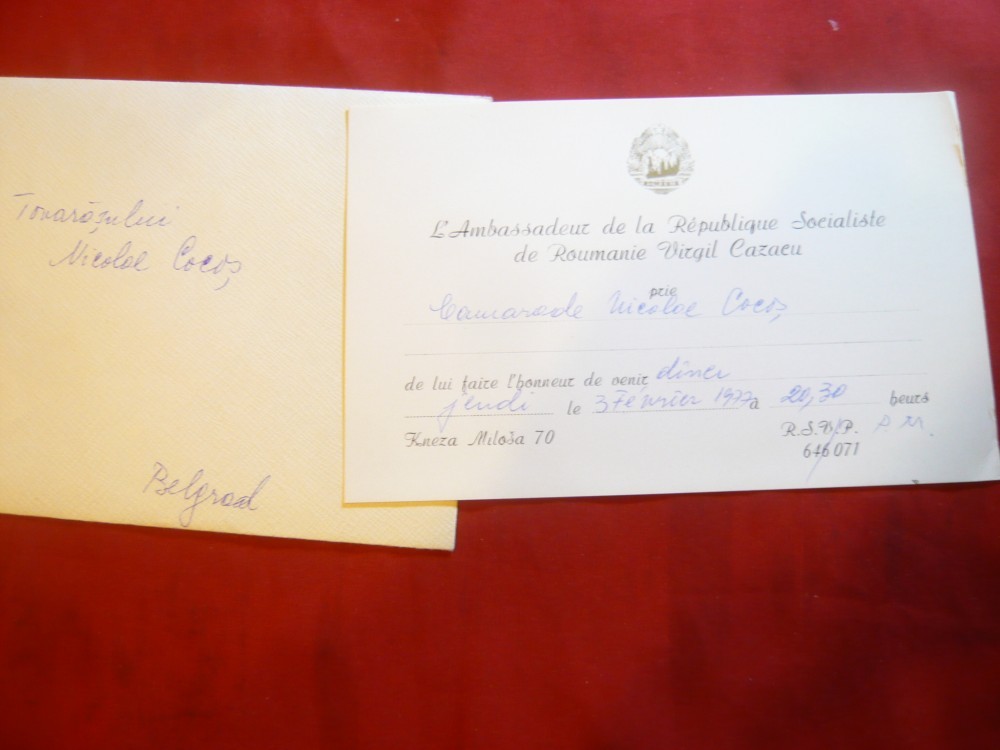 Tovarășului
Nicolae Cocoș
Belgrad
ROMÂNIA
L'Ambassadeur de la République Socialiste
de Roumanie Virgil Cazacu
prie
Camarade Nicolae Cocoș
de lui faire l'honneur de venir dîner
jeudi le 3 Février 1977 à 20,30 heurs
Kneza Miloša 70
R.S.V.P. P.M.
646 071